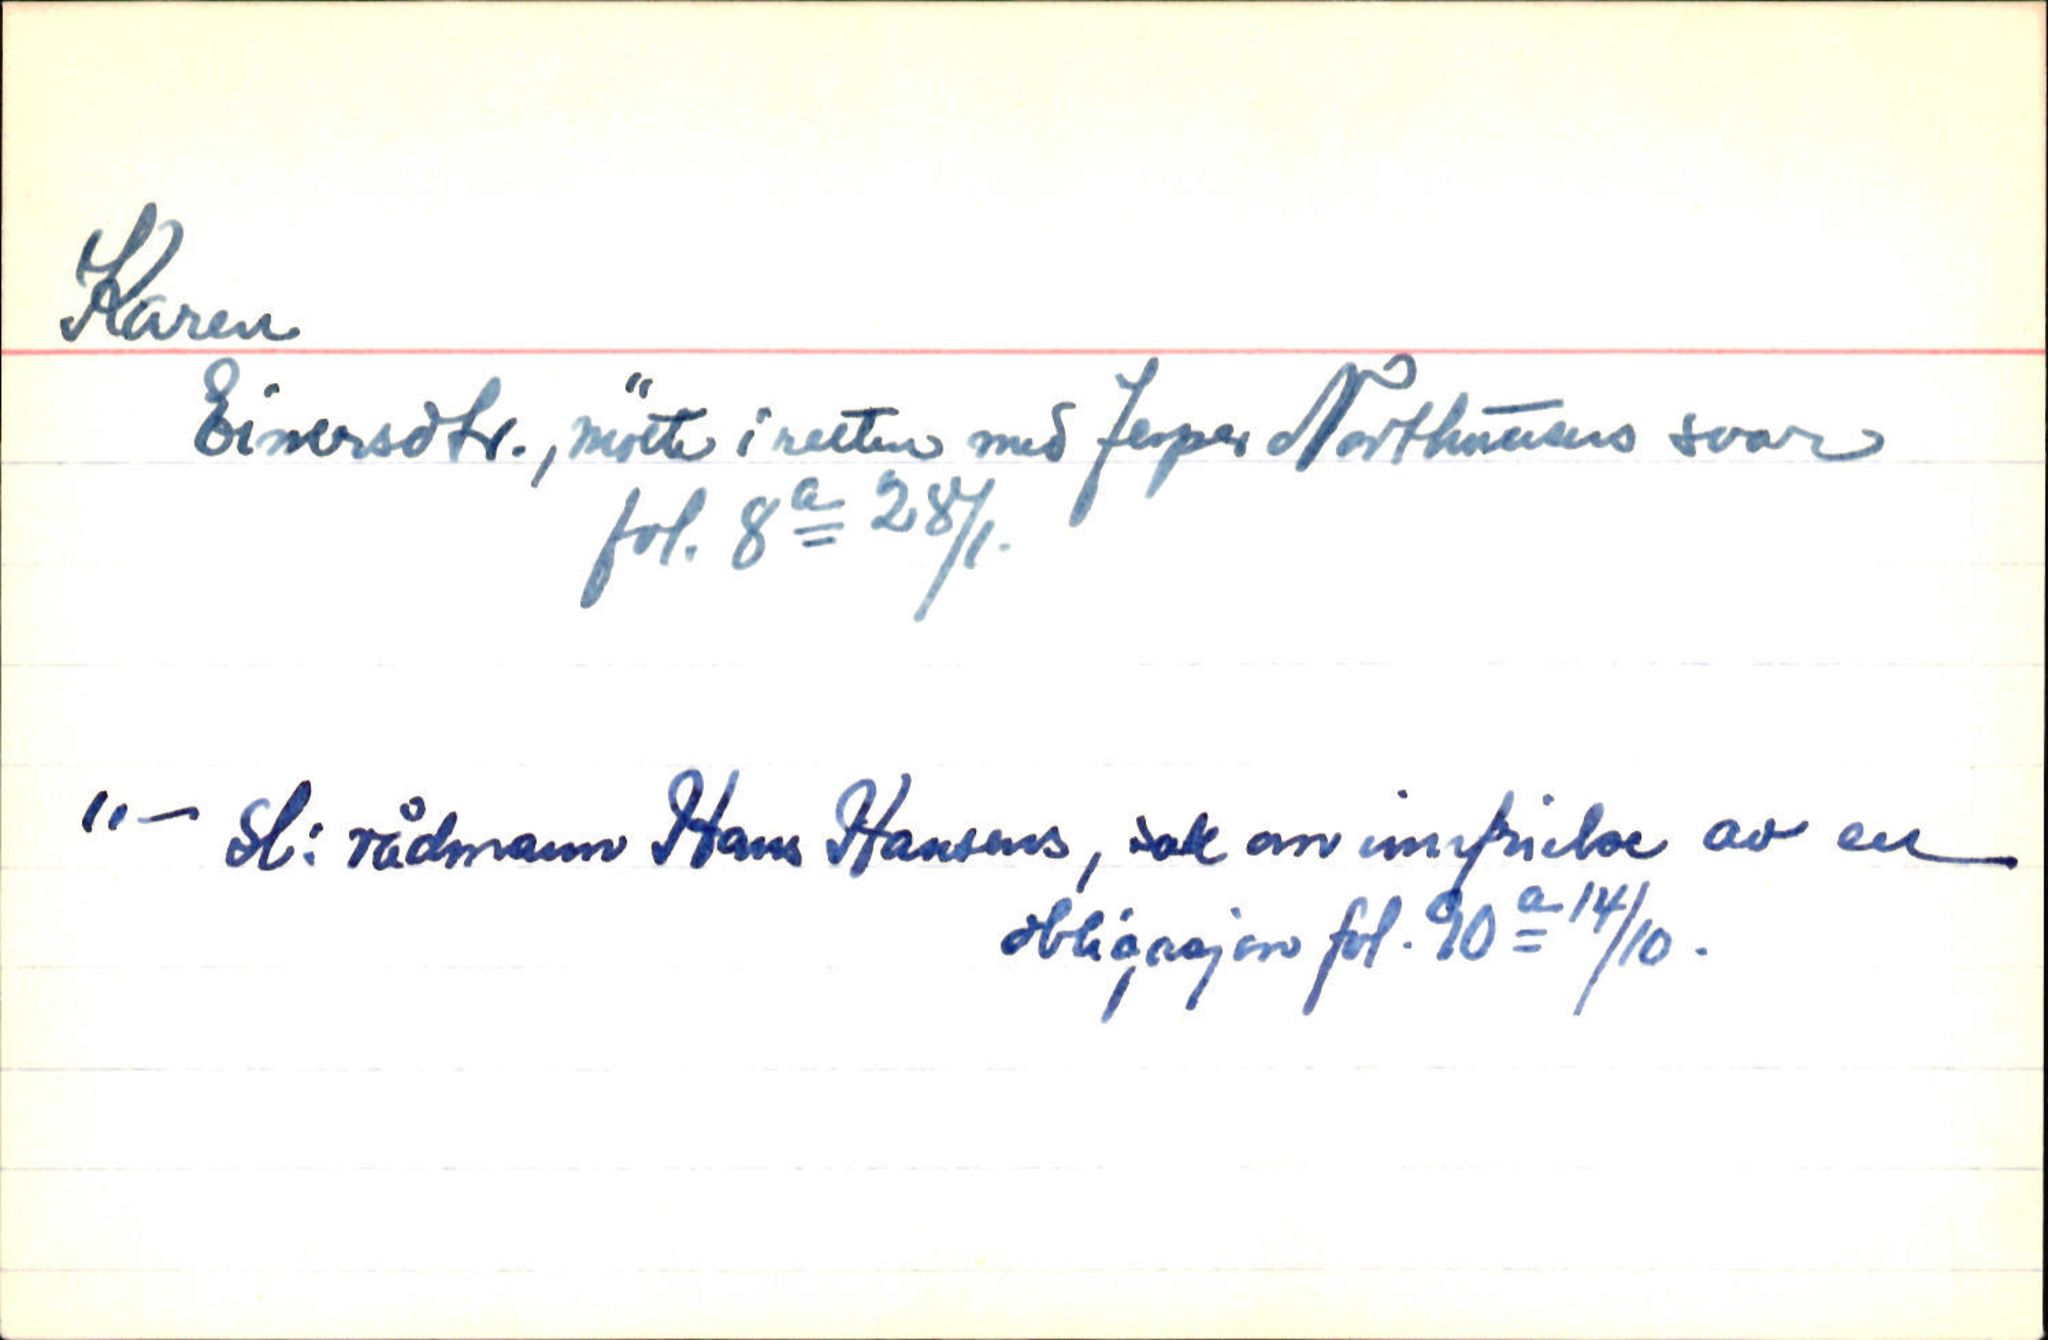 Karen
Einersdtr., mötte i retten med Jesper Northausens svar
fol. 8a 28/1.
"– Sl: rådmann Hans Hansens, sak om innfrielse av en
obligasjon fol. 90a 14/10.